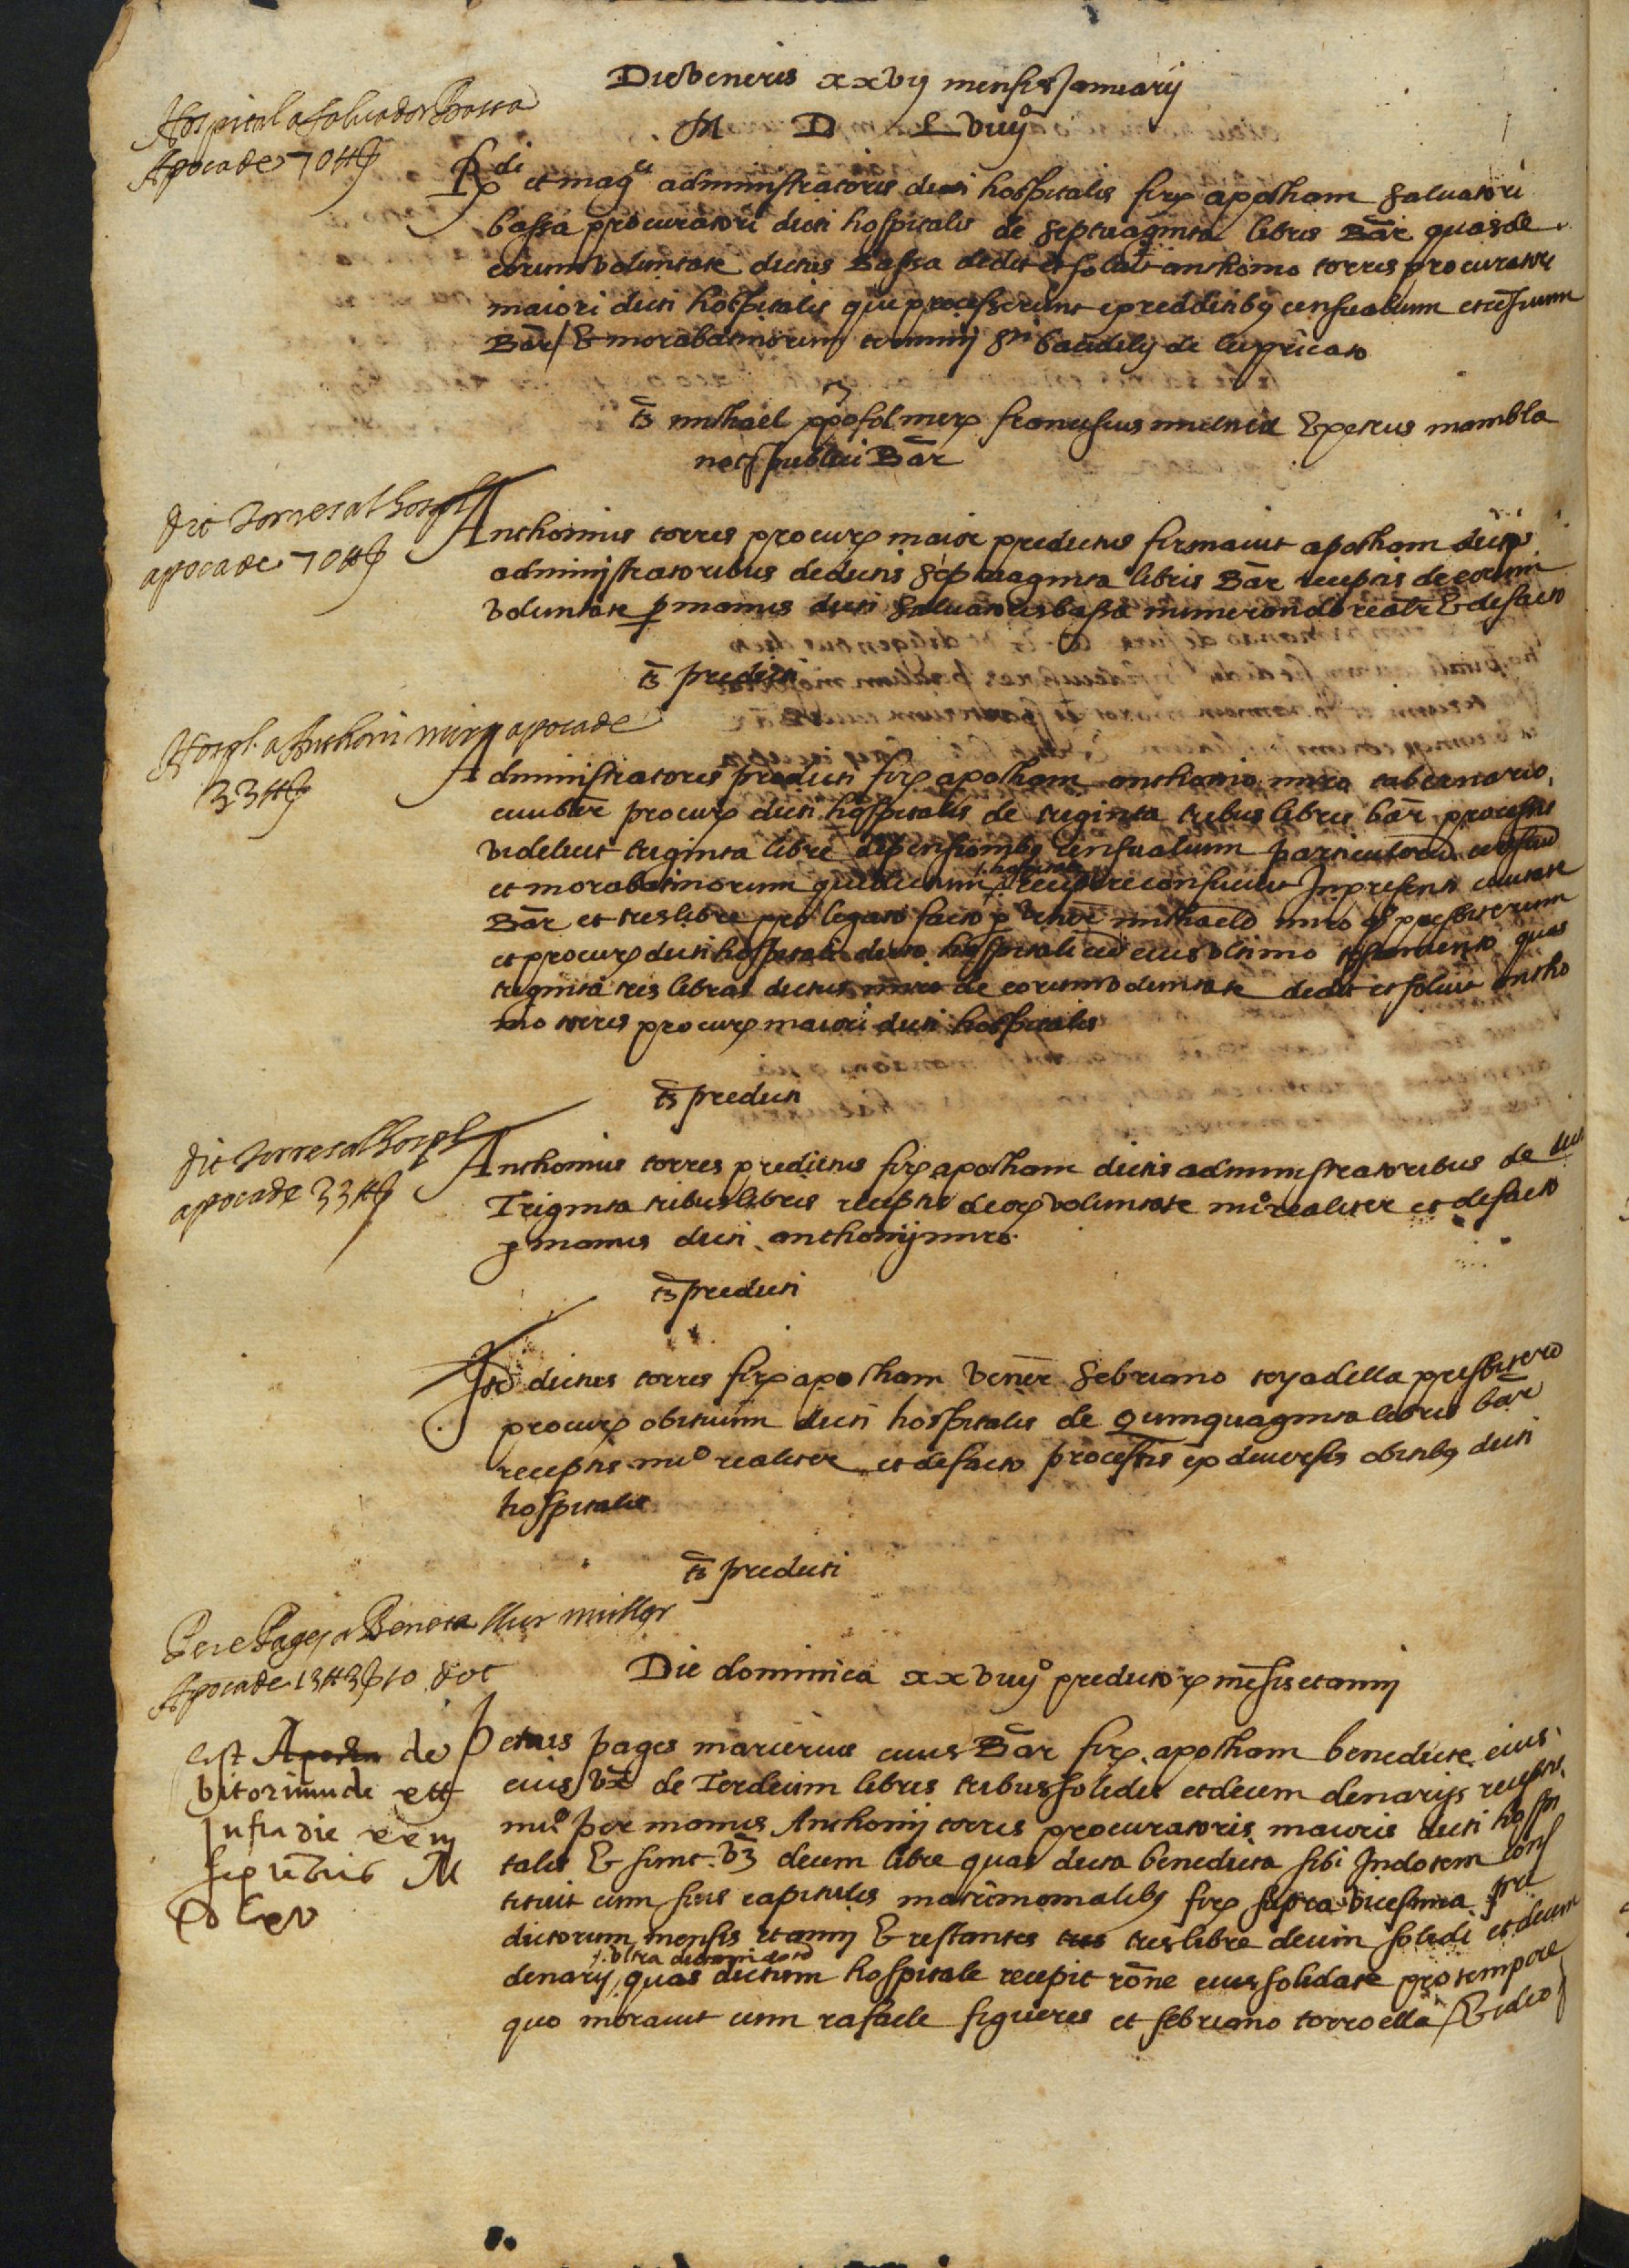 Die Veneris xxvij mensis Januarij
M D L viiijº
Hospital a Salvador Bassa
Apoca de 70 ₶
Rdi et magci administratores dicti hospitalis firmarunt apocham Salvatori
bassa procuratori dicti hospitalis de septuaginta libris Bar quas de
eorum voluntate dictus Bassa dedit et solvit anthonio torres procuratori
maiori dicti hospitalis que processerunt ex redditibus censualium
Bar / & morabatinorum termini sti baudilij de lupricato
ts michael francischus & petrus mambla
notis publici Bar
Dit Torres al hospl
apoca de 70 ₶
Anthonius torres procur maior predictus firmavit apocham dictis
administratoribus de dictis septuaginta libris Bar receptis de eorum
voluntate p manus dicti Salvatoris bassa numerando realr & de facto
ts predicti
Hospl a Anthoni miro apoca de
33 ₶
Administratores predicti fir apocham anthonio miro tabernario,
civi bar procur dicti hospitalis de triginta tribus libris bar processis
videlicet triginta libre ex pensionibus censualium
et morabatinorum que dictum hospitale recipere consuevit In presenti civitate
Bar et tres libre pro legato facto p Vener michaele miro qo presbiterum
et procur dicti hospitalis dicto hospitali cum eius ultimo testamento quas
triginta tres libras dictus miro de eorum voluntate dedit et solvit antho
nio torres procur maiori dicti hospitalis
ts predicti
Dit Torres al hospl
apoca de 33 ₶
Anthonius torres predictus fir apocham dictis administratoribus de dictis
Triginta tribus libris receptis de eor voluntate nuº realiter et de facto
p manus dicti anthonij miro
ts predicti
Ite dictus torres fir apocham Vener Sebriano toyadella presbitero
procur obituum dicti hospitalis de Quinquaginta libris bar
receptis nuº realiter et de facto processis ex diversis obitibus dicti
hospitalis
ts predicti
Pere Pages a Beneta sur muller
Apoca de 13 ₶ 3 s 10 dot
Die dominica xxviiijº predictor mesis et anni
est Apocha de
bitorium de ett
Infra die xxiij
septebris M
D Lxv
Petrus pages civis Bar fir apocham benedicte eius
eius ux de Terdecim libris tribus solidis et decem denarijs receptis
nuº per manus Anthonij torres procuratoris maioris dicti hospi
talis & sunt vz decem libre quas dicta benedicta sibi In dotem cons
tituit cum suis capitulis matrimonialibus fir supra vicesima pre
dictorum mensis et anni & restantes tres tres libre decim solidi et decem
/. ultra dictam dote
denarij quas dictum hospitale recepit rone eius solidate pro tempore
quo moravit cum rafaele figueres et sebriano torroella / & ideo